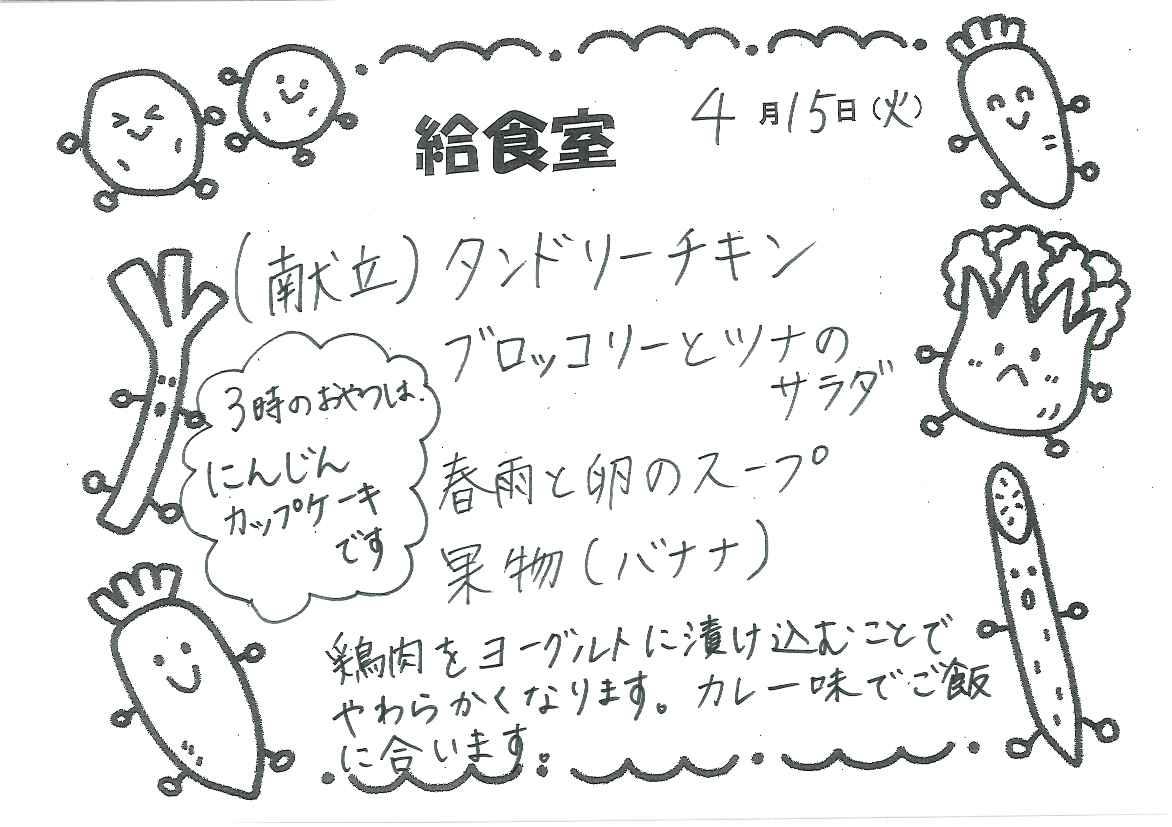 給食室
4月15日(火)
(献立)タンドリーチキン
ブロッコリーとツナの
サラダ
春雨と卵のスープ
果物(バナナ)
3時のおやつは、
にんじん
カップケーキ
です
鶏肉をヨーグルトに漬け込むことで
やわらかくなります。カレー味でご飯
に合います。